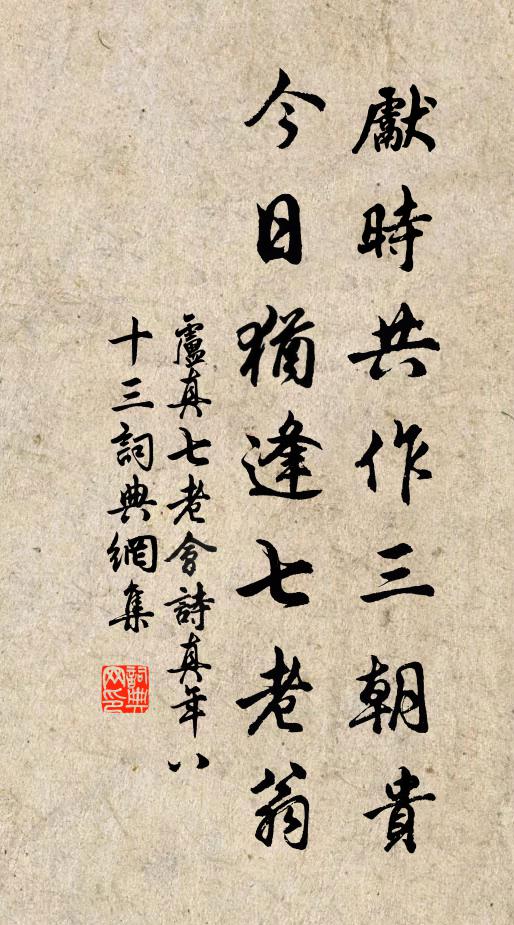 獻時共作三朝貴
今日猶逢七老翁
盧真七老會詩真年八
十三詞典網集
詞典网印